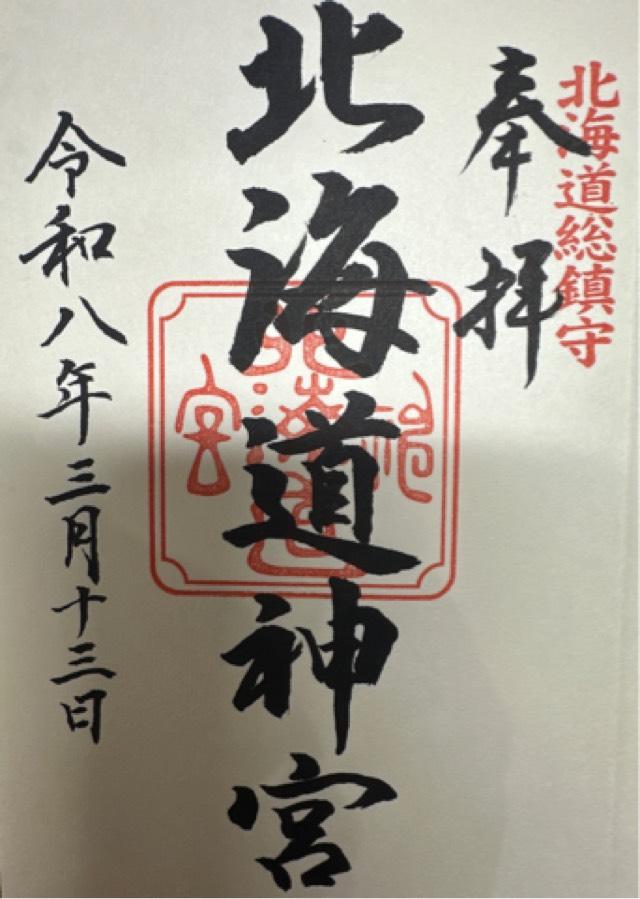 北海道総鎮守
奉拝
北海道神宮
令和八年三月十三日